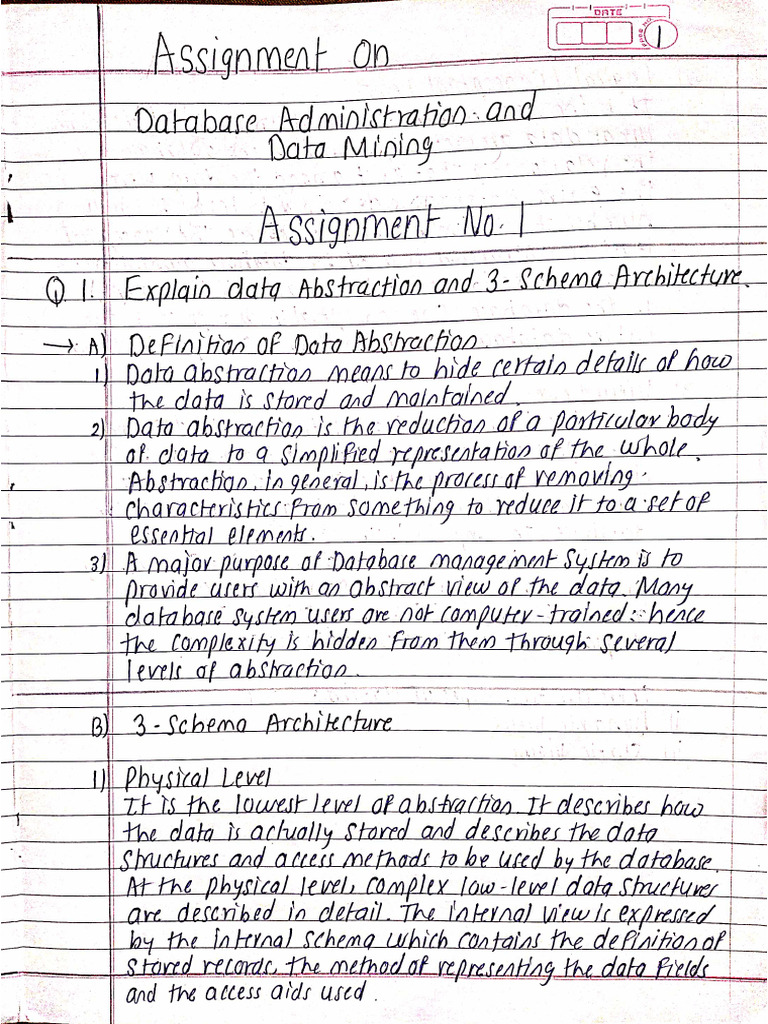 DATE
PAGE NO.
1
Assignment on
Database Administration and
Data Mining
Assignment No. 1
Q 1. Explain data Abstraction and 3-Schema Architecture.
→ A) Definition of Data Abstraction
1) Data abstraction means to hide certain details of how
the data is stored and maintained.
2) Data abstraction is the reduction of a particular body
of data to a simplified representation of the whole.
Abstraction, in general, is the process of removing
characteristics from something to reduce it to a set of
essential elements.
3) A major purpose of Database management System is to
provide users with an abstract view of the data. Many
database system users are not computer-trained; hence
the complexity is hidden from them through several
levels of abstraction.
B) 3-Schema Architecture
1) Physical Level
It is the lowest level of abstraction. It describes how
the data is actually stored and describes the data
structures and access methods to be used by the database.
At the physical level, complex low-level data structures
are described in detail. The internal view is expressed
by the internal schema which contains the definition of
stored records, the method of representing the data fields
and the access aids used.